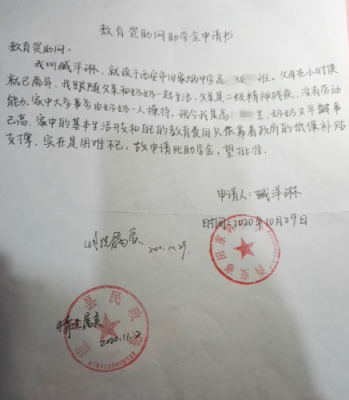 教育资助网助学金申请书
教育资助网:
我叫臧洋琳,就读于西安市田家炳中学高 班。父母在小时候
就已离异,我跟随父亲和奶奶一起生活,父亲是二级精神残疾,没有劳动
能力,家中大多事务由奶奶一人操持。现今我是高 生,奶奶又年龄事
已高,家中的基本生活开支和我的教育费用只依靠着政府的低保补贴
支撑,实在是困难不已,故申请此助学金,望批准。
申请人:臧洋琳
时间:2020年10月29日
情况属实。 2020.10.29.
西安市田家炳
县民政
情况属实
2020.11.2